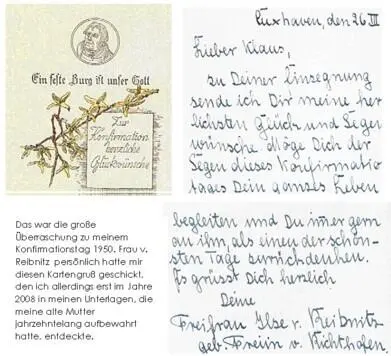 Ein feste Burg ist unser Gott
Zur
Konfirmation
herzliche
Glückwünsche
Das war die große
Überraschung zu meinem
Konfirmationstag 1950. Frau v.
Reibnitz persönlich hatte mir
diesen Kartengruß geschickt,
den ich allerdings erst im Jahre
2008 in meinen Unterlagen, die
meine alte Mutter
jahrzehntelang aufbewahrt
hatte, entdeckte.
Cuxhaven, den 26 III
Lieber Klaus,
zu Deiner Einsegnung
sende ich Dir meine herz
lichsten Glück und Segen
wünsche. Möge Dich der
Segen dieses Konfirmatio
tages Dein ganzes Leben
begleiten und Du immer gern
an ihn, als einen der schön-
sten Tage zurückdenken.
Es grüsst Dich herzlich
Deine
Freifrau Ilse v. Reibnitz
geb. Freiin v. Richthofen.